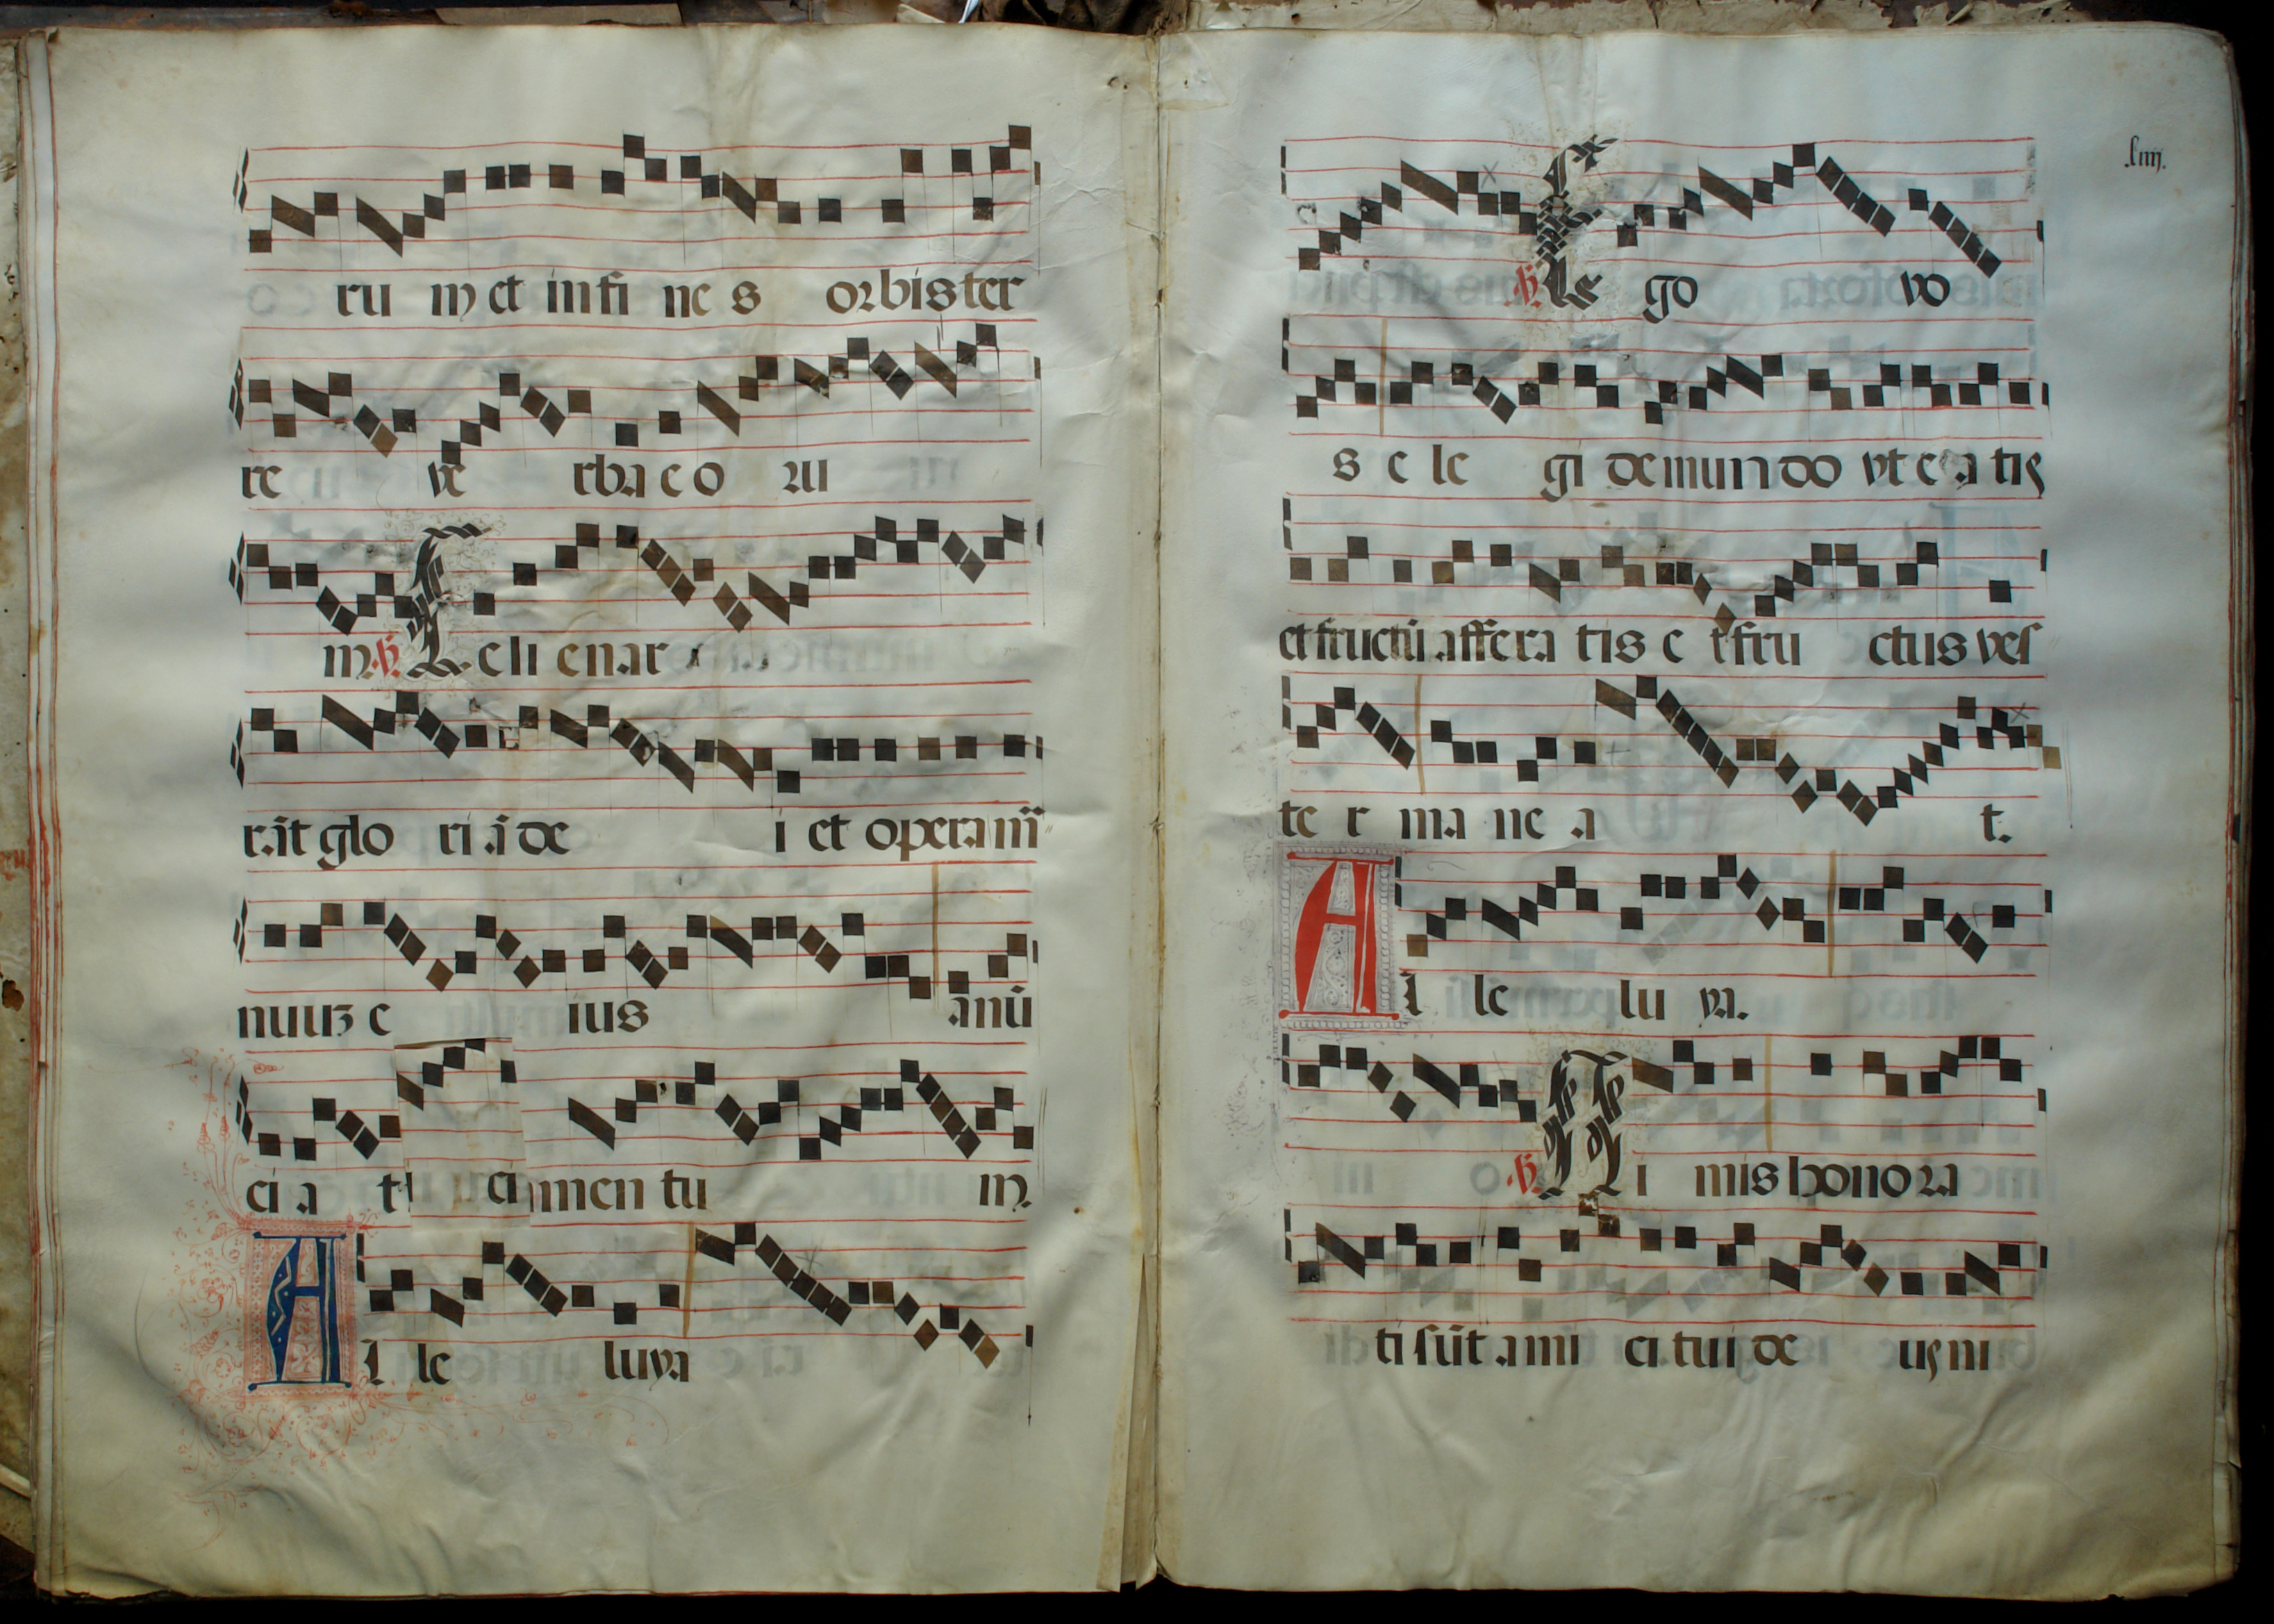 ru m et in fi ne s orbis ter
re ve rba e o ru
m. ℣. C eli enar
rāt glo ri ā de i et opera m̄
nuuꝫ e ius anū
ci a t ci men tu m.
A l le luya
.liiij.
℣. E go vo
s e le gi de mun do vt e a tis
et fructū affera tis e t fru ctus ves
te r ma ne a t.
A l le lu ya.
℣. N i mis honora
ti sūt ami ci tui de us ni